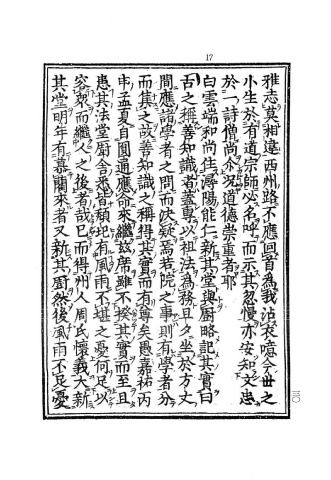 17
雅志莫相違西州路不應回首為我沾衣噫今世之
小生於有道宗師必名呼而示其忽慢亦安知文忠
於一詩僧尚尒況道德崇重者耶
白雲端和尚住潯陽能仁新其堂與厨略記其實曰
古之稱善知識者蓋專以祖法為務旦夕坐於方丈
間應諸學者之問而決疑焉其院之事則有學者分
而集之故善知識之稱得其實而有尊矣愚嘉祐丙
申孟夏自圓通應命來繼茲席雖不揆其實而至且
患其法堂厨舍悉皆頹圮有風雨不堪之憂何足以
容衆而繼人之後者哉巳而得州人周氏懷義大新
其堂明年有慕蘭來者又新其厨然後風雨不足憂
三〇